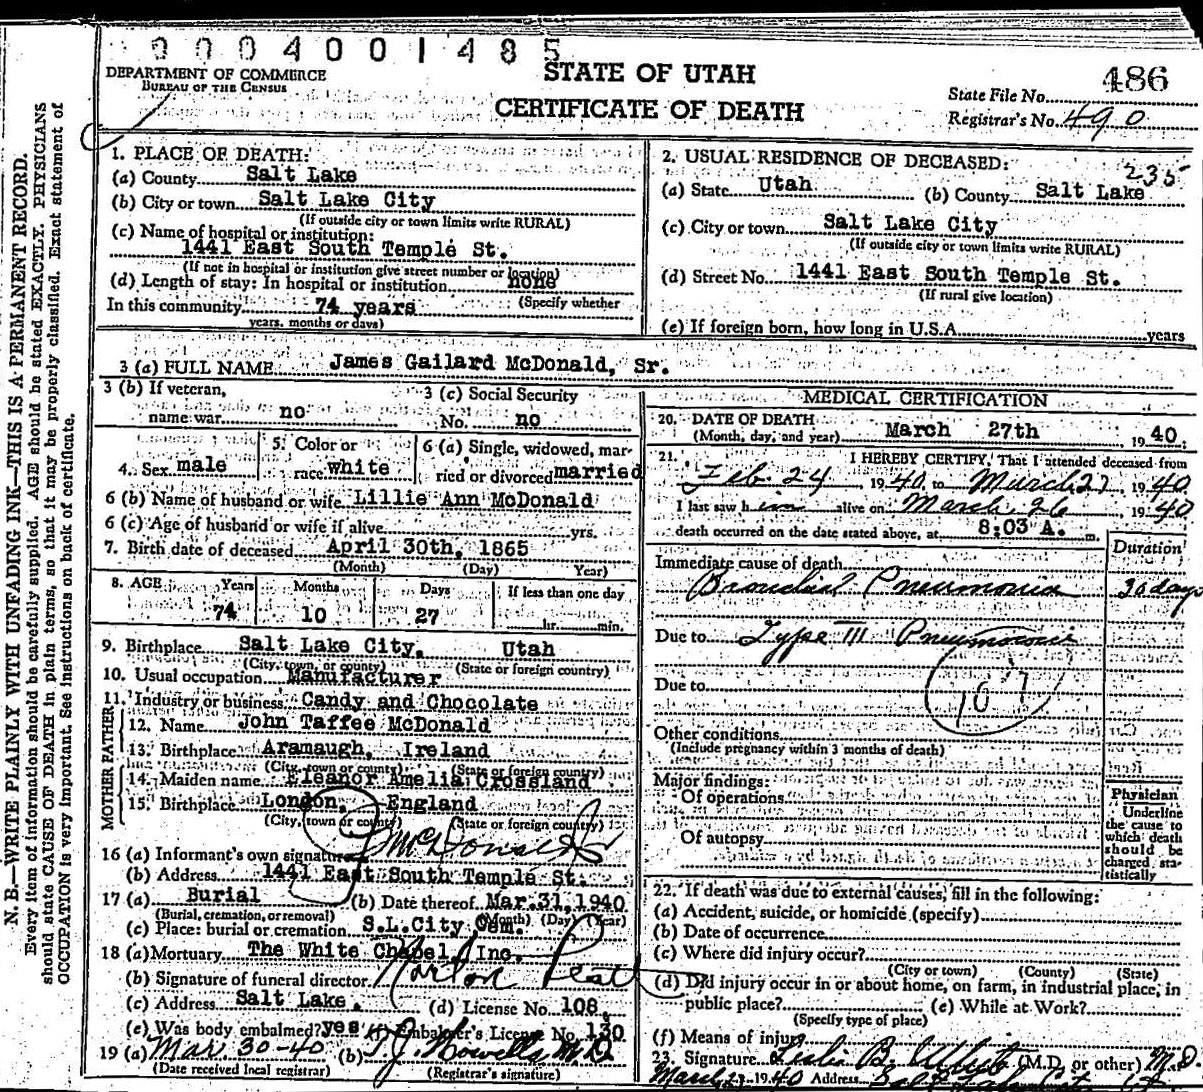 0004001485
DEPARTMENT OF COMMERCE
BUREAU OF THE CENSUS
STATE OF UTAH
CERTIFICATE OF DEATH
State File No. 486
Registrar's No. 490
N. B.—WRITE PLAINLY WITH UNFADING INK—THIS IS A PERMANENT RECORD.
Every item of information should be carefully supplied. AGE should be stated EXACTLY. PHYSICIANS
should state CAUSE OF DEATH in plain terms, so that it may be properly classified. Exact statement of
OCCUPATION is very important. See instructions on back of certificate.
1. PLACE OF DEATH:
(a) County Salt Lake
(b) City or town Salt Lake City
(If outside city or town limits write RURAL)
(c) Name of hospital or institution:
1441 East South Temple St.
(If not in hospital or institution give street number or location)
(d) Length of stay: In hospital or institution none
In this community 74 years (Specify whether
years, months or days)
2. USUAL RESIDENCE OF DECEASED: 235
(a) State Utah (b) County Salt Lake
(c) City or town Salt Lake City
(If outside city or town limits write RURAL)
(d) Street No. 1441 East South Temple St.
(If rural give location)
(e) If foreign born, how long in U.S.A. years
3 (a) FULL NAME James Gailard McDonald, Sr.
3 (b) If veteran, 3 (c) Social Security
name war no No. no
4. Sex male 5. Color or race white 6 (a) Single, widowed, married or divorced married
6 (b) Name of husband or wife Lillie Ann McDonald
6 (c) Age of husband or wife if alive yrs.
7. Birth date of deceased April 30th, 1865
(Month) (Day) Year)
8. AGE Years Months Days If less than one day
74 10 27 hr. min.
9. Birthplace Salt Lake City, Utah
(City, town, or county) (State or foreign country)
10. Usual occupation Manufacturer
11. Industry or business Candy and Chocolate
FATHER
12. Name John Taffee McDonald
13. Birthplace Aramaugh, Ireland
(City, town, or county) (State or foreign country)
MOTHER
14. Maiden name Eleanor Amelia Crossland
15. Birthplace London, England
(City, town or county) (State or foreign country)
16 (a) Informant's own signature J McDonald Jr
(b) Address 1441 East South Temple St.
17 (a) Burial (b) Date thereof Mar. 31, 1940
(Burial, cremation, or removal) (Month) (Day) (Year)
(c) Place: burial or cremation S.L.City Cem.
18 (a) Mortuary The White Chapel, Inc.
(b) Signature of funeral director
(c) Address Salt Lake. (d) License No. 108
(e) Was body embalmed? yes (f) Embalmer's License No. 130
19 (a) Mar 30-40 (b) T.J. Howells M.D.
(Date received local registrar) (Registrar's signature)
MEDICAL CERTIFICATION
20. DATE OF DEATH
(Month, day, and year) March 27th 1940;
21. I HEREBY CERTIFY, That I attended deceased from
Feb. 24, 1940, to March 27, 1940
I last saw him alive on March 26 1940
death occurred on the date stated above, at 8:03 A. m.
Duration
Immediate cause of death
Bronchial Pneumonia 30 days
Due to Type III Pneumococci
107
Due to
Other conditions
(Include pregnancy within 3 months of death)
Major findings:
Of operations
Of autopsy
Physician
Underline
the cause to
which death
should be
charged sta-
tistically
22. If death was due to external causes, fill in the following:
(a) Accident, suicide, or homicide (specify)
(b) Date of occurrence
(c) Where did injury occur?
(City or town) (County) (State)
(d) Did injury occur in or about home, on farm, in industrial place, in
public place? (e) While at Work?
(Specify type of place)
(f) Means of injury
23. Signature Leslie B. (M.D. or other) M.D
1940 Address